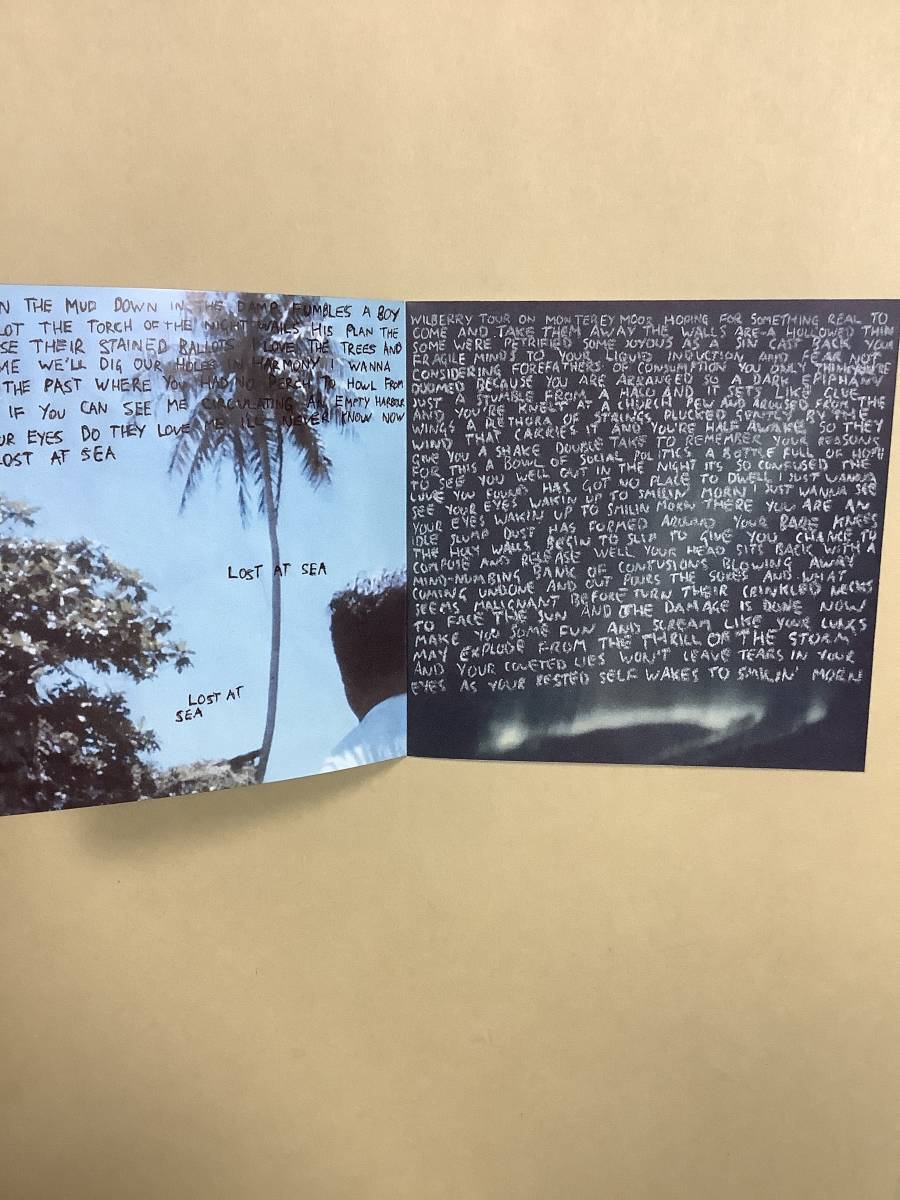 N THE MUD DOWN IN THE DAMP FUMBLES A BOY
LOT THE TORCH OF THE NIGHT WAILS HIS PLAN THE
SE THEIR STAINED BALLOTS I LOVE THE TREES AND
ME WE'LL DIG OUR HOLES IN HARMONY I WANNA
THE PAST WHERE YOU HAD NO PERCH TO HOWL FROM
IF YOU CAN SEE ME CIRCULATING AN EMPTY HARBOUR
UR EYES DO THEY LOVE ME ILL NEVER KNOW NOW
LOST AT SEA
LOST AT SEA
LOST AT
SEA
WILBERRY TOUR ON MONTEREY MOOR HOPING FOR SOMETHING REAL TO
COME AND TAKE THEM AWAY THE WALLS ARE A HOLLOWED THIN
SOME WERE PETRIFIED SOME JOYOUS AS A SIN CAST BACK YOUR
FRAGILE MINDS TO YOUR LIQUID INDUCTION AND FEAR NOT
CONSIDERING FOREFATHERS OF CONSUMPTION YOU ONLY THINK YOU'RE
DOOMED BECAUSE YOU ARE ARRANGED SO A DARK EPIPHANY
JUST A STUMBLE FROM A HALO AND IT SETS LIKE GLUE
AND YOU'RE KNELT AT A CHURCH PEW AND AROUSED FROM THE
WINGS A PLETHORA OF STRINGS PLUCKED THE
WIND THAT CARRIES IT AND YOU'RE HALF AWAKE SO THEY
GIVE YOU A SHAKE DOUBLE TAKE TO REMEMBER YOUR REASONS
FOR THIS A BOWL OF SOCIAL POLITICS A BOTTLE FULL OF HOPE
TO SEE YOU WELL OUT IN THE NIGHT ITS SO CONFUSED THE
LOVE YOU FOUND HAS GOT NO PLACE TO DWELL I JUST WANNA
SEE YOUR EYES WAKIN UP TO SMILIN MORN I JUST WANNA SEE
YOUR EYES WAKIN UP TO SMILIN MORN THERE YOU ARE AN
IDLE SLUMP DUST HAS FORMED AROUND YOUR BARE KNEES
THE HOLY WALLS BEGIN TO SLIP TO GIVE YOU CHANCE TO
COMPOSE AND RELEASE WELL YOUR HEAD SITS BACK WITH A
MIND-NUMBING BANK OF CONFUSIONS BLOWING AWAY
COMING UNDONE AND OUT POURS THE SORES AND WHAT
SEEMS MALIGNANT BEFORE TURN THEIR CRINKLED NECKS
TO FACE THE SUN AND THE DAMAGE IS DONE NOW
MAKE YOU SOME FUN AND SCREAM LIKE YOUR LUNGS
MAY EXPLODE FROM THE THRILL OF THE STORM
AND YOUR COVETED LIES WON'T LEAVE TEARS IN YOUR
EYES AS YOUR RESTED SELF WAKES TO SMILIN' MORN